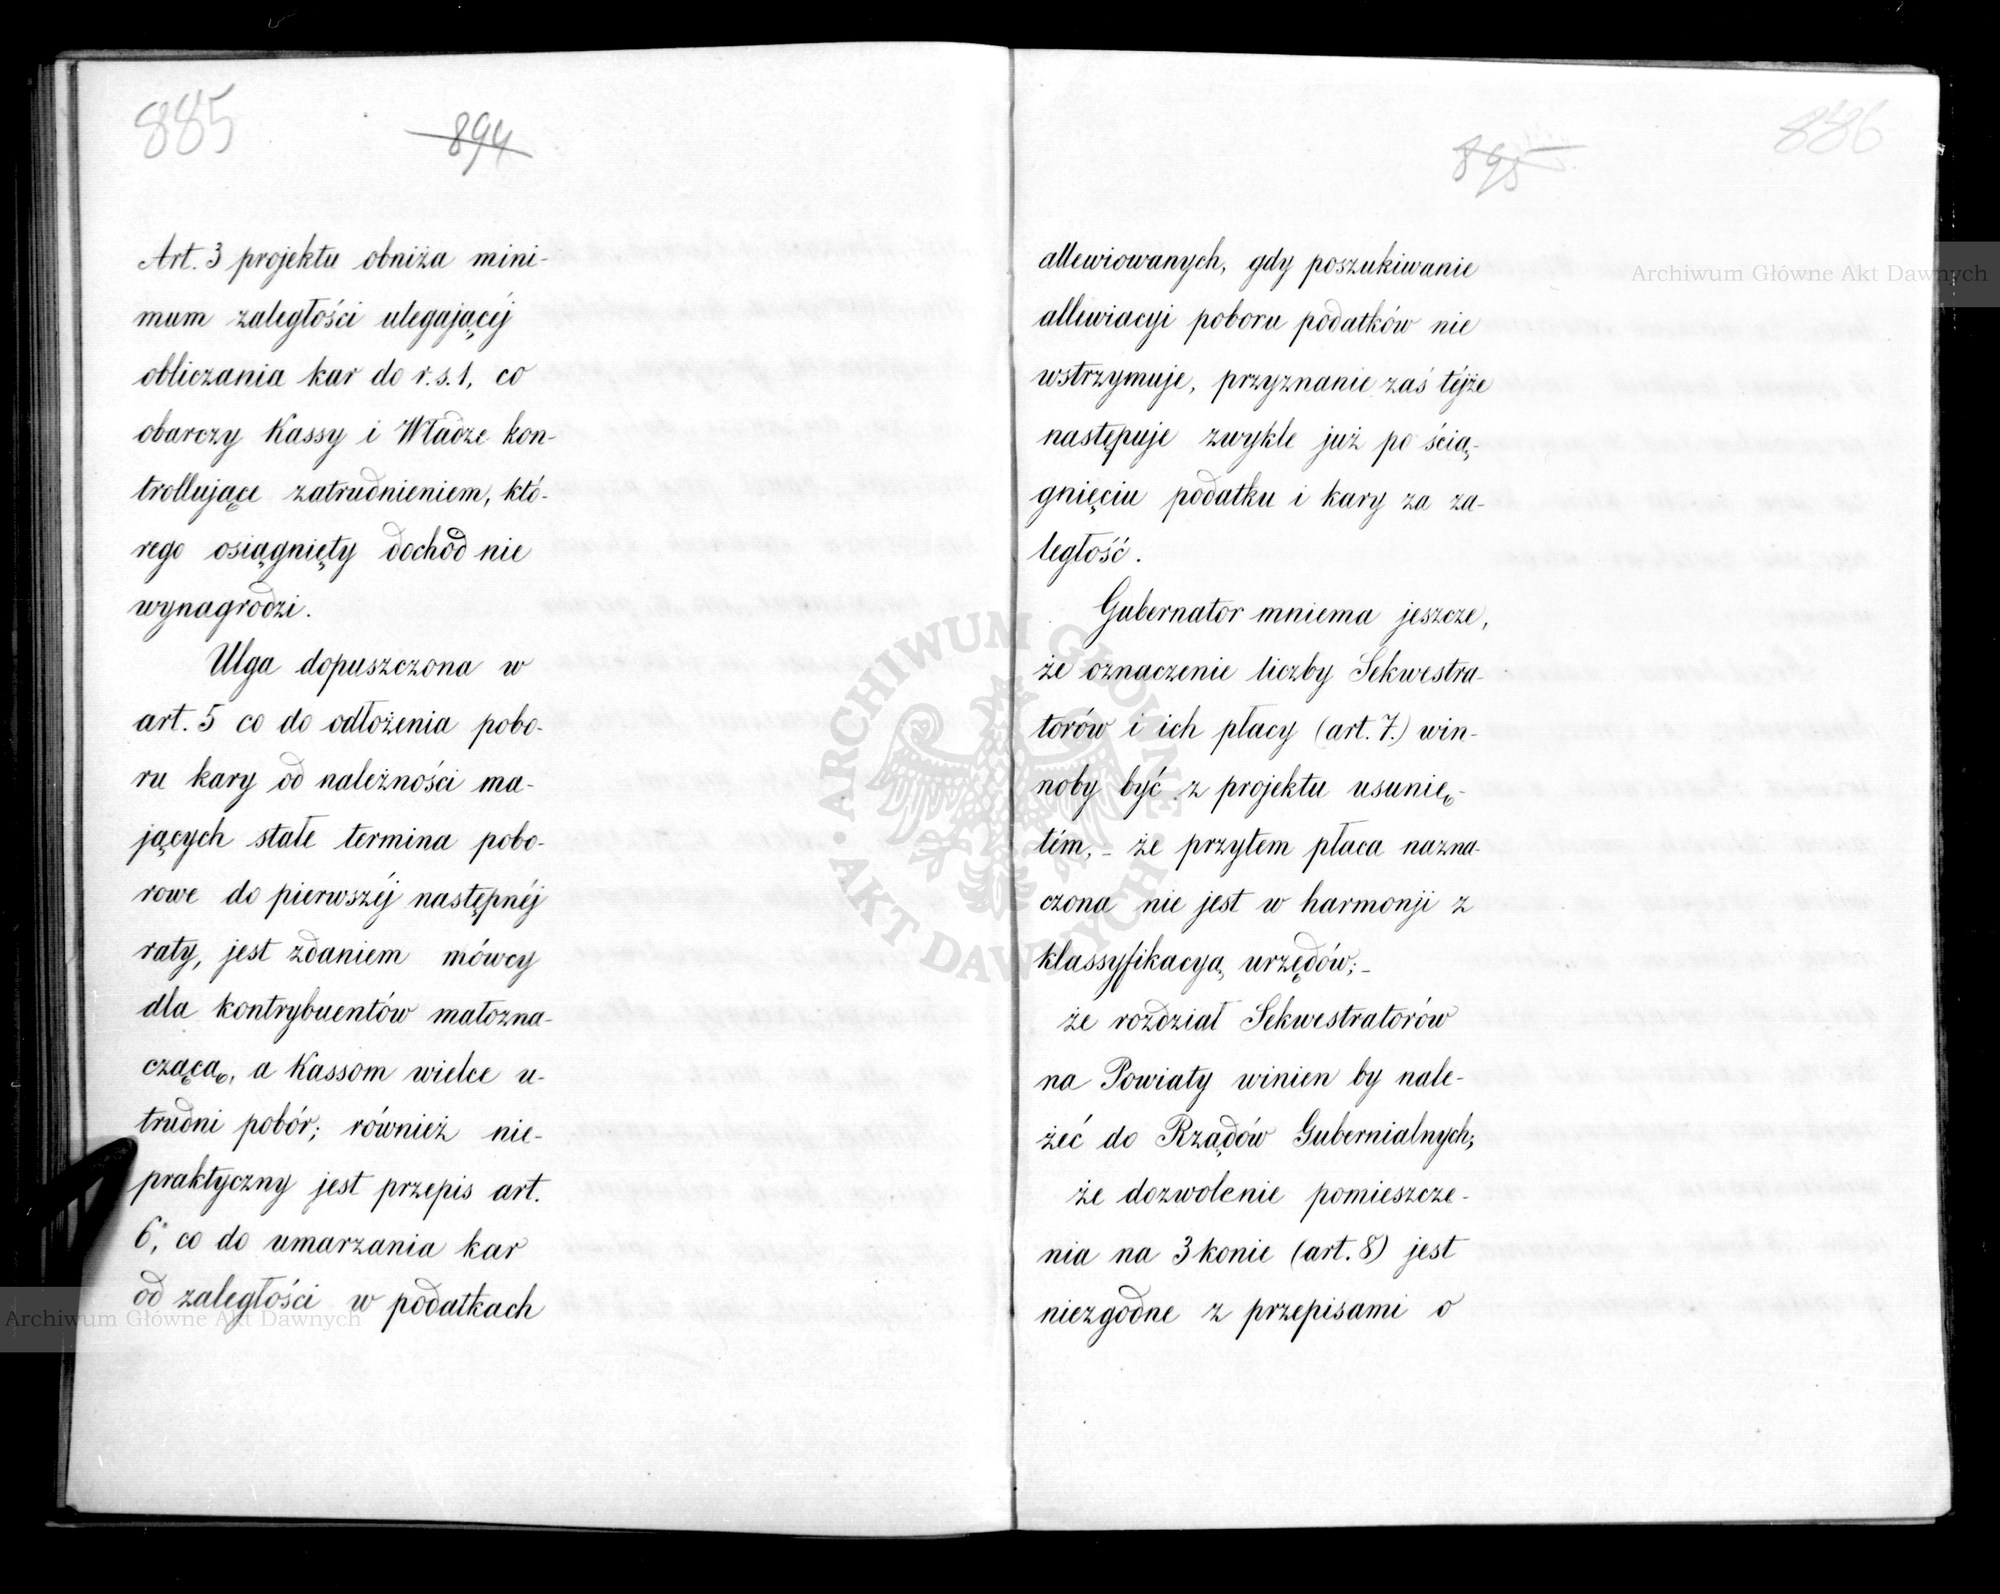 885
894
Art. 3 projektu obniża mini-
mum zaległości ulegającéj
obliczania kar do r.s. 1, co
obarczy Kassy i Władze kon-
trollujące zatrudnieniem, któ-
rego osiągnięty dochod nie
wynagrodzi.
Ulga dopuszczona w
art. 5 co do odłożenia pobo-
ru kary od należności ma-
jących stałe termina pobo-
rowe do pierwszéj następnéj
raty, jest zdaniem mówcy
dla kontrybuentów małozna-
czącą, a Kassom wielce u-
trudni pobór; również nie-
praktyczny jest przepis art.
6, co do umarzania kar
od zaległości w podatkach
Archiwum Główne Akt Dawnych
895
886
allewiowanych, gdy poszukiwanie
Archiwum Główne Akt Dawnych
allewiacyi poboru podatków nie
wstrzymuje, przyznanie zaś téjże
następuje zwykle już po ścią-
gnięciu podatku i kary za za-
ległość.
Gubernator mniema jeszcze,
że oznaczenie liczby Sekwestra-
torów i ich płacy (art. 7.) win-
noby być z projektu usunię-
tém, – że przytem płaca nazna-
czona nie jest w harmonji z
klassyfikacyą urzędów; –
że rozdział Sekwestratorów
na Powiaty winien by nale-
żeć do Rządów Gubernialnych;
że dozwolenie pomieszcze-
nia na 3 konie (art. 8) jest
niezgodne z przepisami o
ARCHIWUM GŁÓWNE AKT DAWNYCH